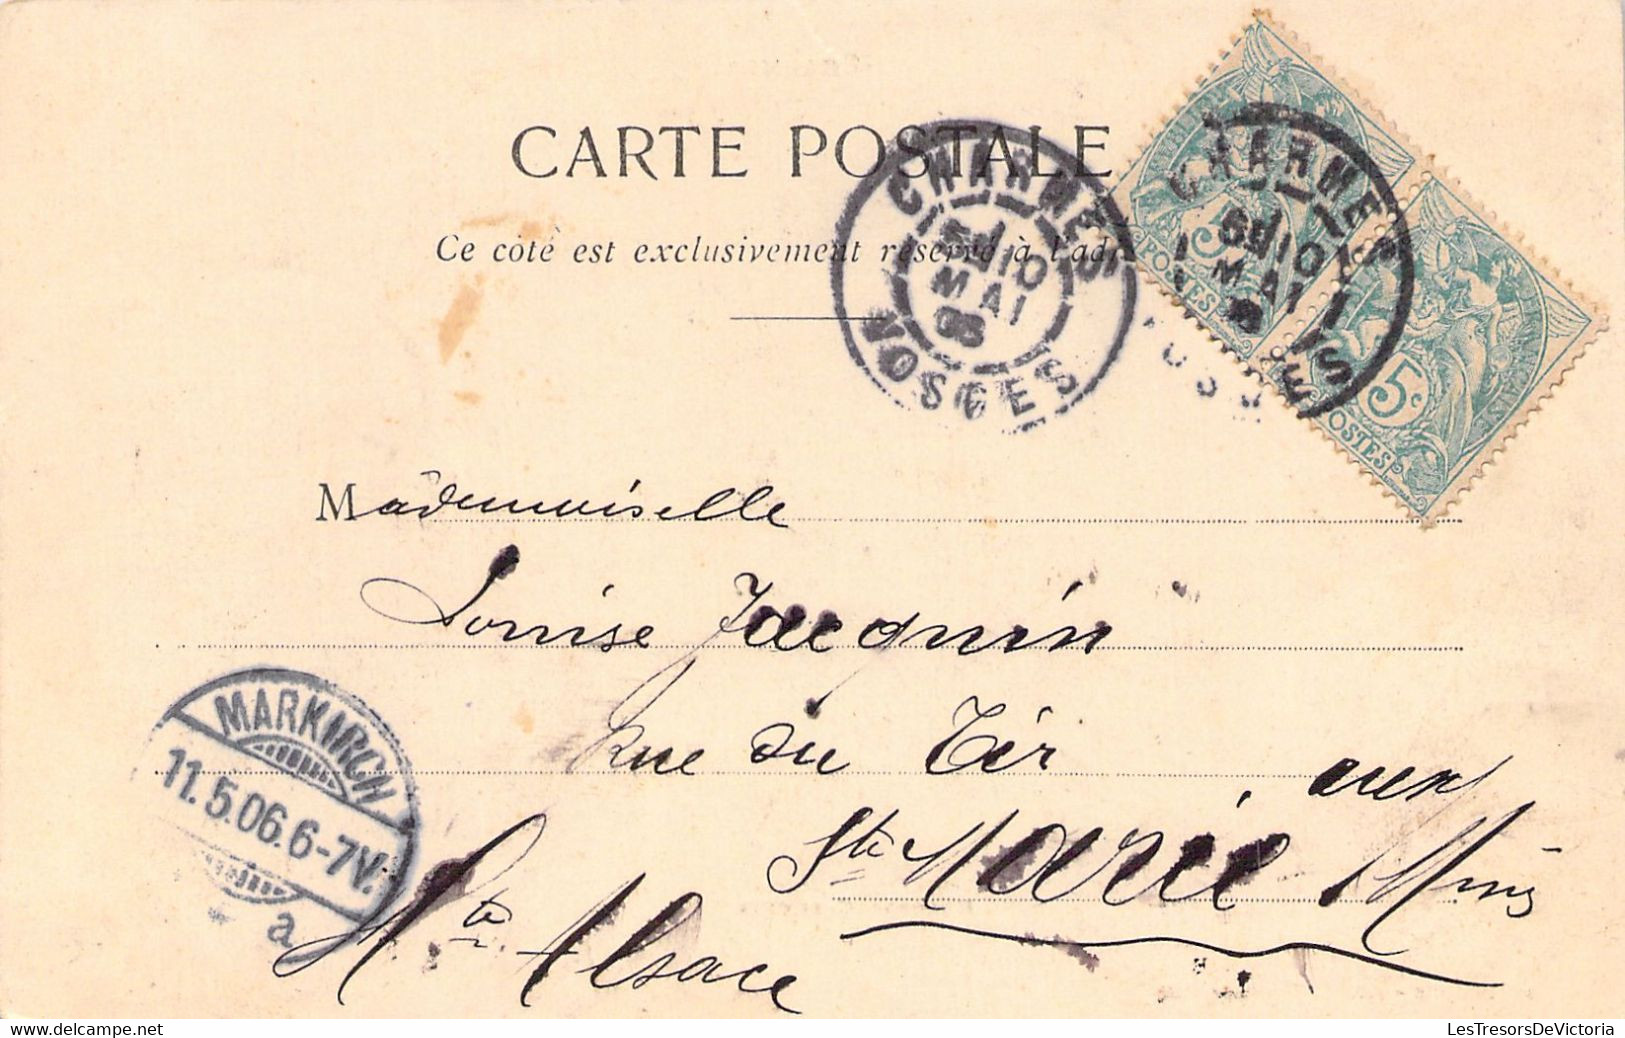 CARTE POSTALE
Ce côté est exclusivement réservé à l'adr
CHARMES
5E 10
MAI
06
VOSGES
CHARMES
10
MAI
5c
POSTES
5c
POSTES
Mademoiselle
Louise Jacquin
Rue du Tir
Ste Marie aux Mines
Hte Alsace
MARKIRCH
11.5.06.6-7V.
a
LesTresorsDeVictoria
www.delcampe.net